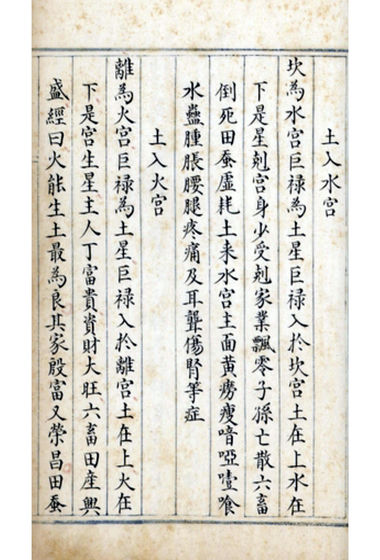 土入水宫
坎為水宫巨禄為土星巨禄入於坎宫土在上水在
下是星剋宫身少受剋家業飄零子孫亡散六畜
倒死田蚕虚耗土来水宫主面黄癆瘦喑啞噎飡
水蠱腫脹腰腿疼痛及耳聾傷腎等症
土入火宫
離為火宫巨禄為土星巨禄入於離宫土在上火在
下是宫生星主人丁富貴資財大旺六畜田産興
盛經曰火能生土最為良其家殷富又榮昌田蚕